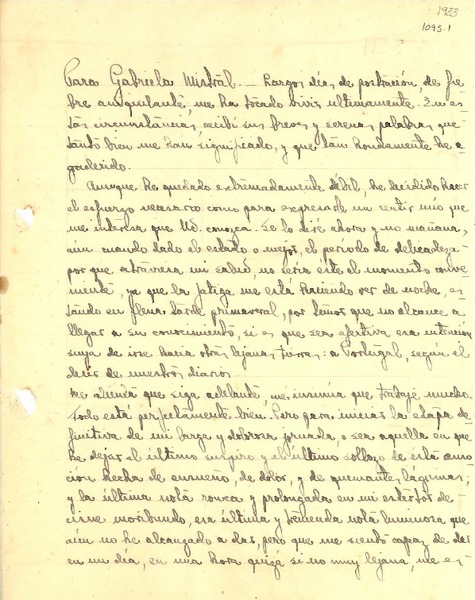 1933
1095.1
Para Gabriela Mistral. – Largos días de postración, de fie
bre aniquilante, me ha tocado vivir ultimamente. En es
tas circunstancias, recibí sus breves y serenas palabras que
tanto bien me han significado, y que tan hondamente he a
gradecido.
Aunque he quedado extremadamente débil, he decidido hacer
el esfuerzo necesario como para expresarle un sentir mío que
me interesa que Ud. conozca. Se lo diré ahora y no mañana,
aún cuando dado el estado o mejor, el período de delicadeza
por que atraviesa mi salud, no sería este el momento conve
niente, ya que la fatiga me está haciendo ver de noche, es
tando en plena tarde primaveral, por temor que no alcance a
llegar a su conocimiento, si es que sea efectiva era intención
suya de irse hacia otras lejanas tierras: a Portugal, según el
decir de nuestros diarios.
Me alienta que siga adelante, me insinúa que trabaje mucho.
Todo está perfectamente bien. Pero para iniciar la etapa de
finitiva de mi larga y dolorosa jornada, o sea aquella en que
he dejar el último suspiro y el último sollozo de esta emo
ción hecha de ensueño, de dolor, y de quemantes lágrimas;
y la última nota ronca y prolongada en mi estertor de
cisne moribundo, esa última y tremenda nota luminosa que
aún no he alcanzado a dar, pero que me siento capaz de dar
en un día, en una hora quizá si no muy lejana, me es